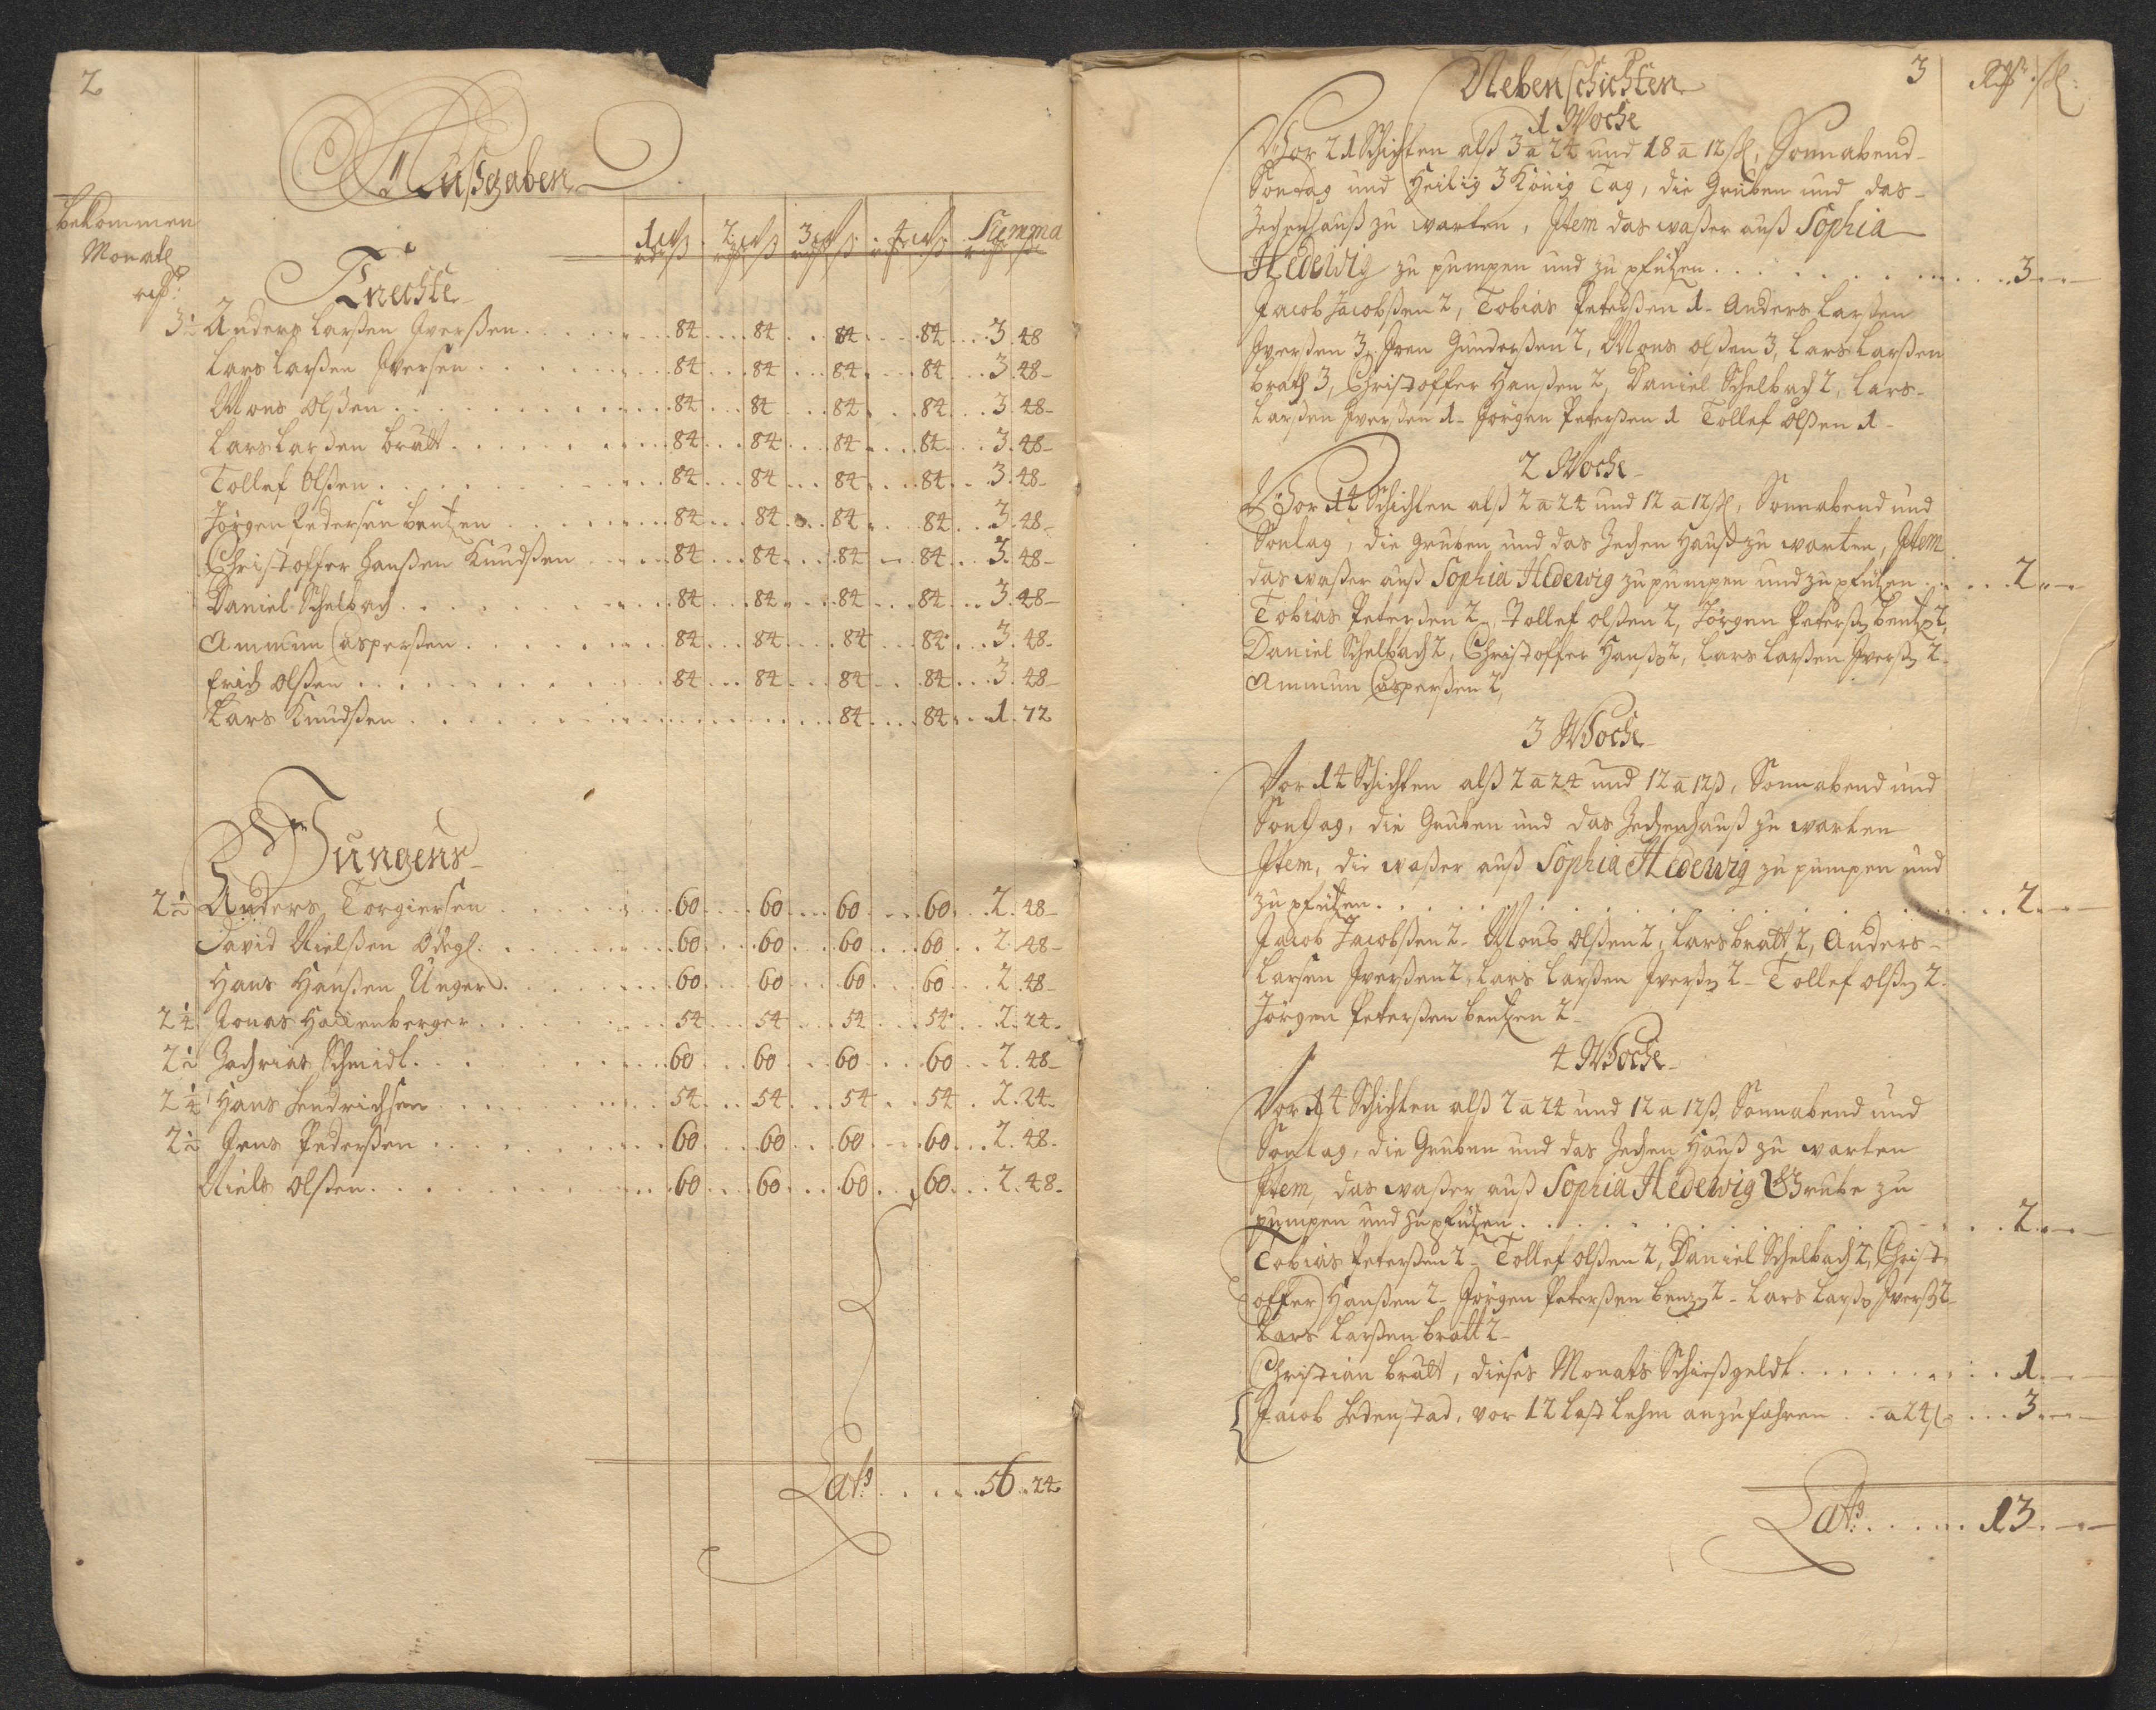 2
Außgaben
bekommen
Monatl
rdß:
1 W 2 W 3 W 4 W Summa
Knechte
3½ Anders Larßen Iverßen 84 84 84 84 3 48
Lars Larßen Iversen 84 84 84 84 3 48
Mons Olßen 84 84 84 84 3 48
Lars Larßen Bratt 84 84 84 84 3 48
Tollef Olßen 84 84 84 84 3 48
Jörgen Pedersen Bentzen 84 84 84 84 3 48
Christoffer Hanßen Knudßen 84 84 84 84 3 48
Daniel Schelbach 84 84 84 84 3 48
Ammun Casperßen 84 84 84 84 3 48
Erich Olßen 84 84 84 84 3 48
Lars Knudßen 84 84 1 72
Jungens
2½ Anders Torgiersen 60 60 60 60 2 48
David Nielßen 60 60 60 60 2 48
Hans Hanßen Unger 60 60 60 60 2 48
2¼ Jonas Hallenberger 54 54 54 54 2 24
2½ Zachrias Schmidt 60 60 60 60 2 48
2¼ Hans Hendrichsen 54 54 54 54 2 24
2½ Jens Pederßen 60 60 60 60 2 48
Niels Olßen 60 60 60 60 2 48
Lats 56 24
3
Nebenschichten
1 Woche
Vor 21 Schichten alß 3 a 24 und 18 a 12 ß, Sonnabend
Sontag und Heilig 3 König Tag, die Gruben und das
Zechenhauß zu warten, Item das waßer auß Sophia
Hedewig zu pumpen und zu pfützen 3
Jacob Jacobßen 2, Tobias Peterßen 1 Anders Larßen
Iverßen 3, Iven Gunderßen 2, Mons Olßen 3, Lars Larßen
Brath 3, Christoffer Hanßen 2, Daniel Schelbach 2, Lars
Larßen Iverßen 1 Jörgen Peterßen 1 Tollef Olßen 1
2 Woche
Vor 14 Schichten alß 2 a 24 und 12 a 12 ß, Sonnabend und
Sontag, die Gruben und das Zechen Hauß zu warten, Item
das waßer auß Sophia Hedewig zu pumpen und zu pfützen 2
Tobias Peterßen 2, Tollef Olßen 2, Jörgen Peterß Bentz 2,
Daniel Schelbach 2, Christoffer Hanß 2, Lars Larßen Iverß 2
Ammun Casperßen 2,
3 Woche
Vor 14 Schichten alß 2 a 24 und 12 a 12 ß, Sonnabend und
Sontag, die Gruben und das Zechenhauß zu warten
Item, die waßer auß Sophia Hedewig zu pumpen und
zu pfützen 2
Jacob Jacobßen 2 Mons Olßen 2, Lars Bratt 2, Anders
Larsen Iverßen 2, Lars Larßen Iverß 2 Tollef Olß 2
Jörgen Peterßen Bentzen 2
4 Woche
Vor 14 Schichten alß 2 a 24 und 12 a 12 ß, Sonnabend und
Sontag, die Gruben und das Zechen Hauß zu warten
Item, das waßer auß Sophia Hedewig Grube zu
pumpen und zu pfützen 2
Tobias Peterßen 2 Tollef Olßen 2, Daniel Schelbach 2, Christ
offer Hanßen 2 Jörgen Peterßen Benz 2 Lars Larß Iverß 2
Lars Larßen Bratt 2
Christian Bratt, dieses Monats Schießgeldt 1
Jacob Hedenstad, vor 12 Last Lehm anzufahren a 24 ß 3
Lats 13